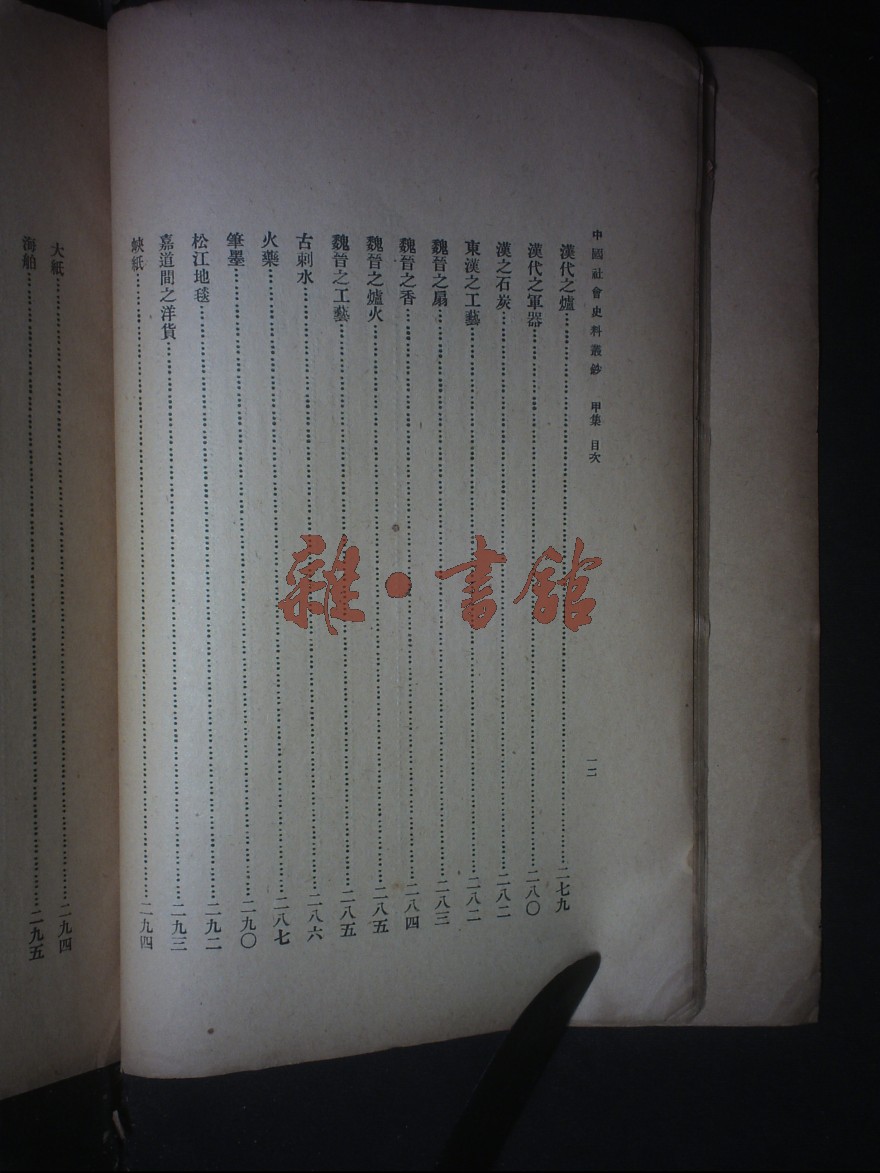 中國社會史料叢鈔 甲集 目次 一二
漢代之爐……二七九
漢代之軍器……二八〇
漢之石炭……二八二
東漢之工藝……二八二
魏晉之扇……二八三
魏晉之香……二八四
魏晉之爐火……二八五
魏晉之工藝……二八五
古刺水……二八六
火藥……二八七
筆墨……二九〇
松江地毯……二九二
嘉道間之洋貨……二九三
蛺紙……二九四
大紙……二九四
海舶……二九五
雜·書館